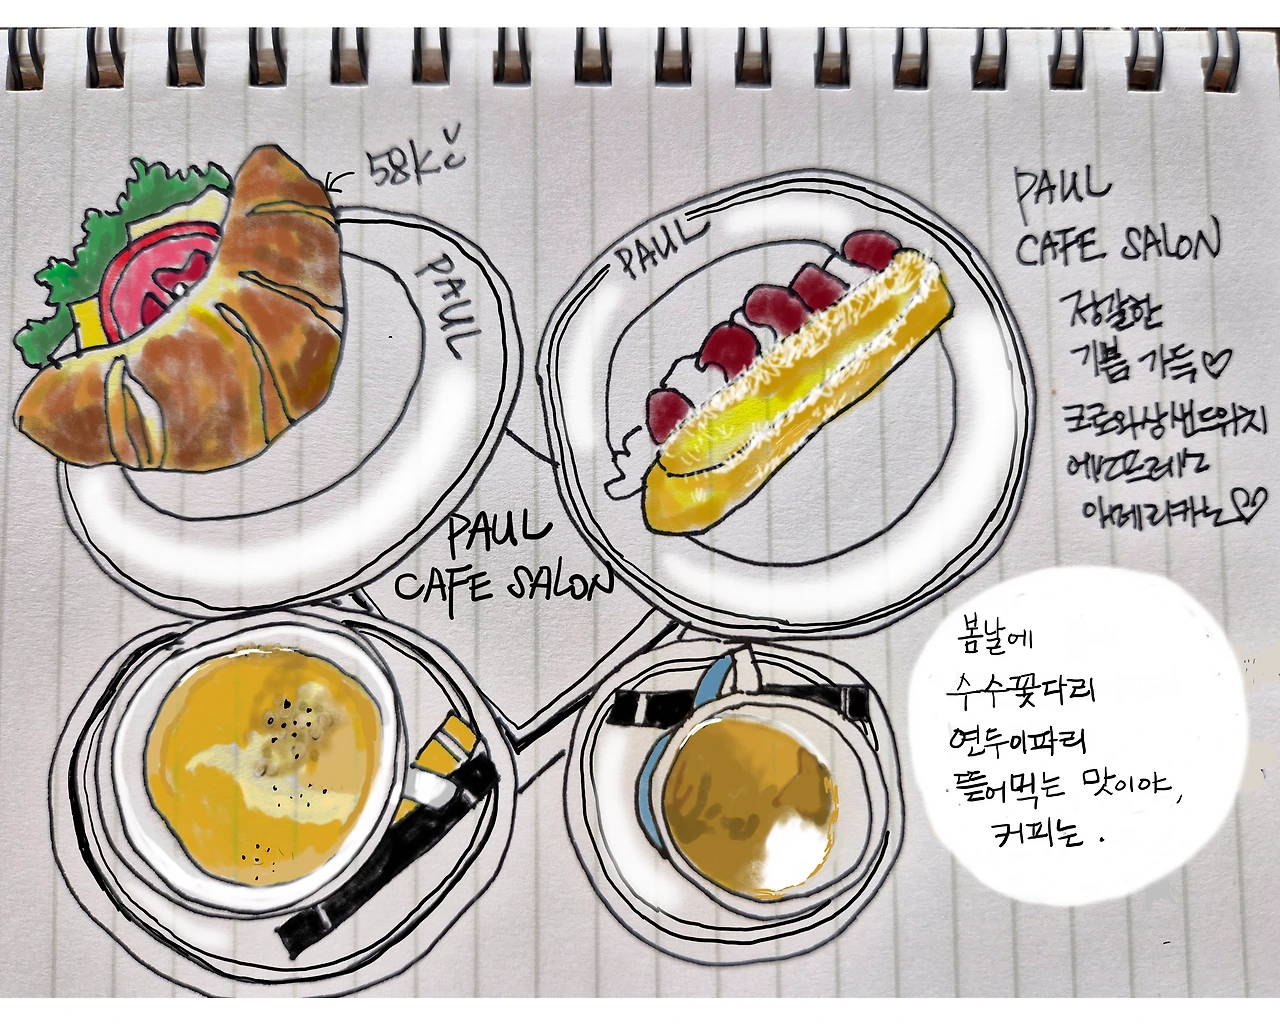 58Kč
PAUL
PAUL
PAUL
CAFE SALON
정갈한
기쁨 가득♡
크로와상샌드위치
에스프레소
아메리카노♡
PAUL
CAFE SALON
봄날에
수수꽃다리
연두이파리
뜯어먹는 맛이야,
커피는.